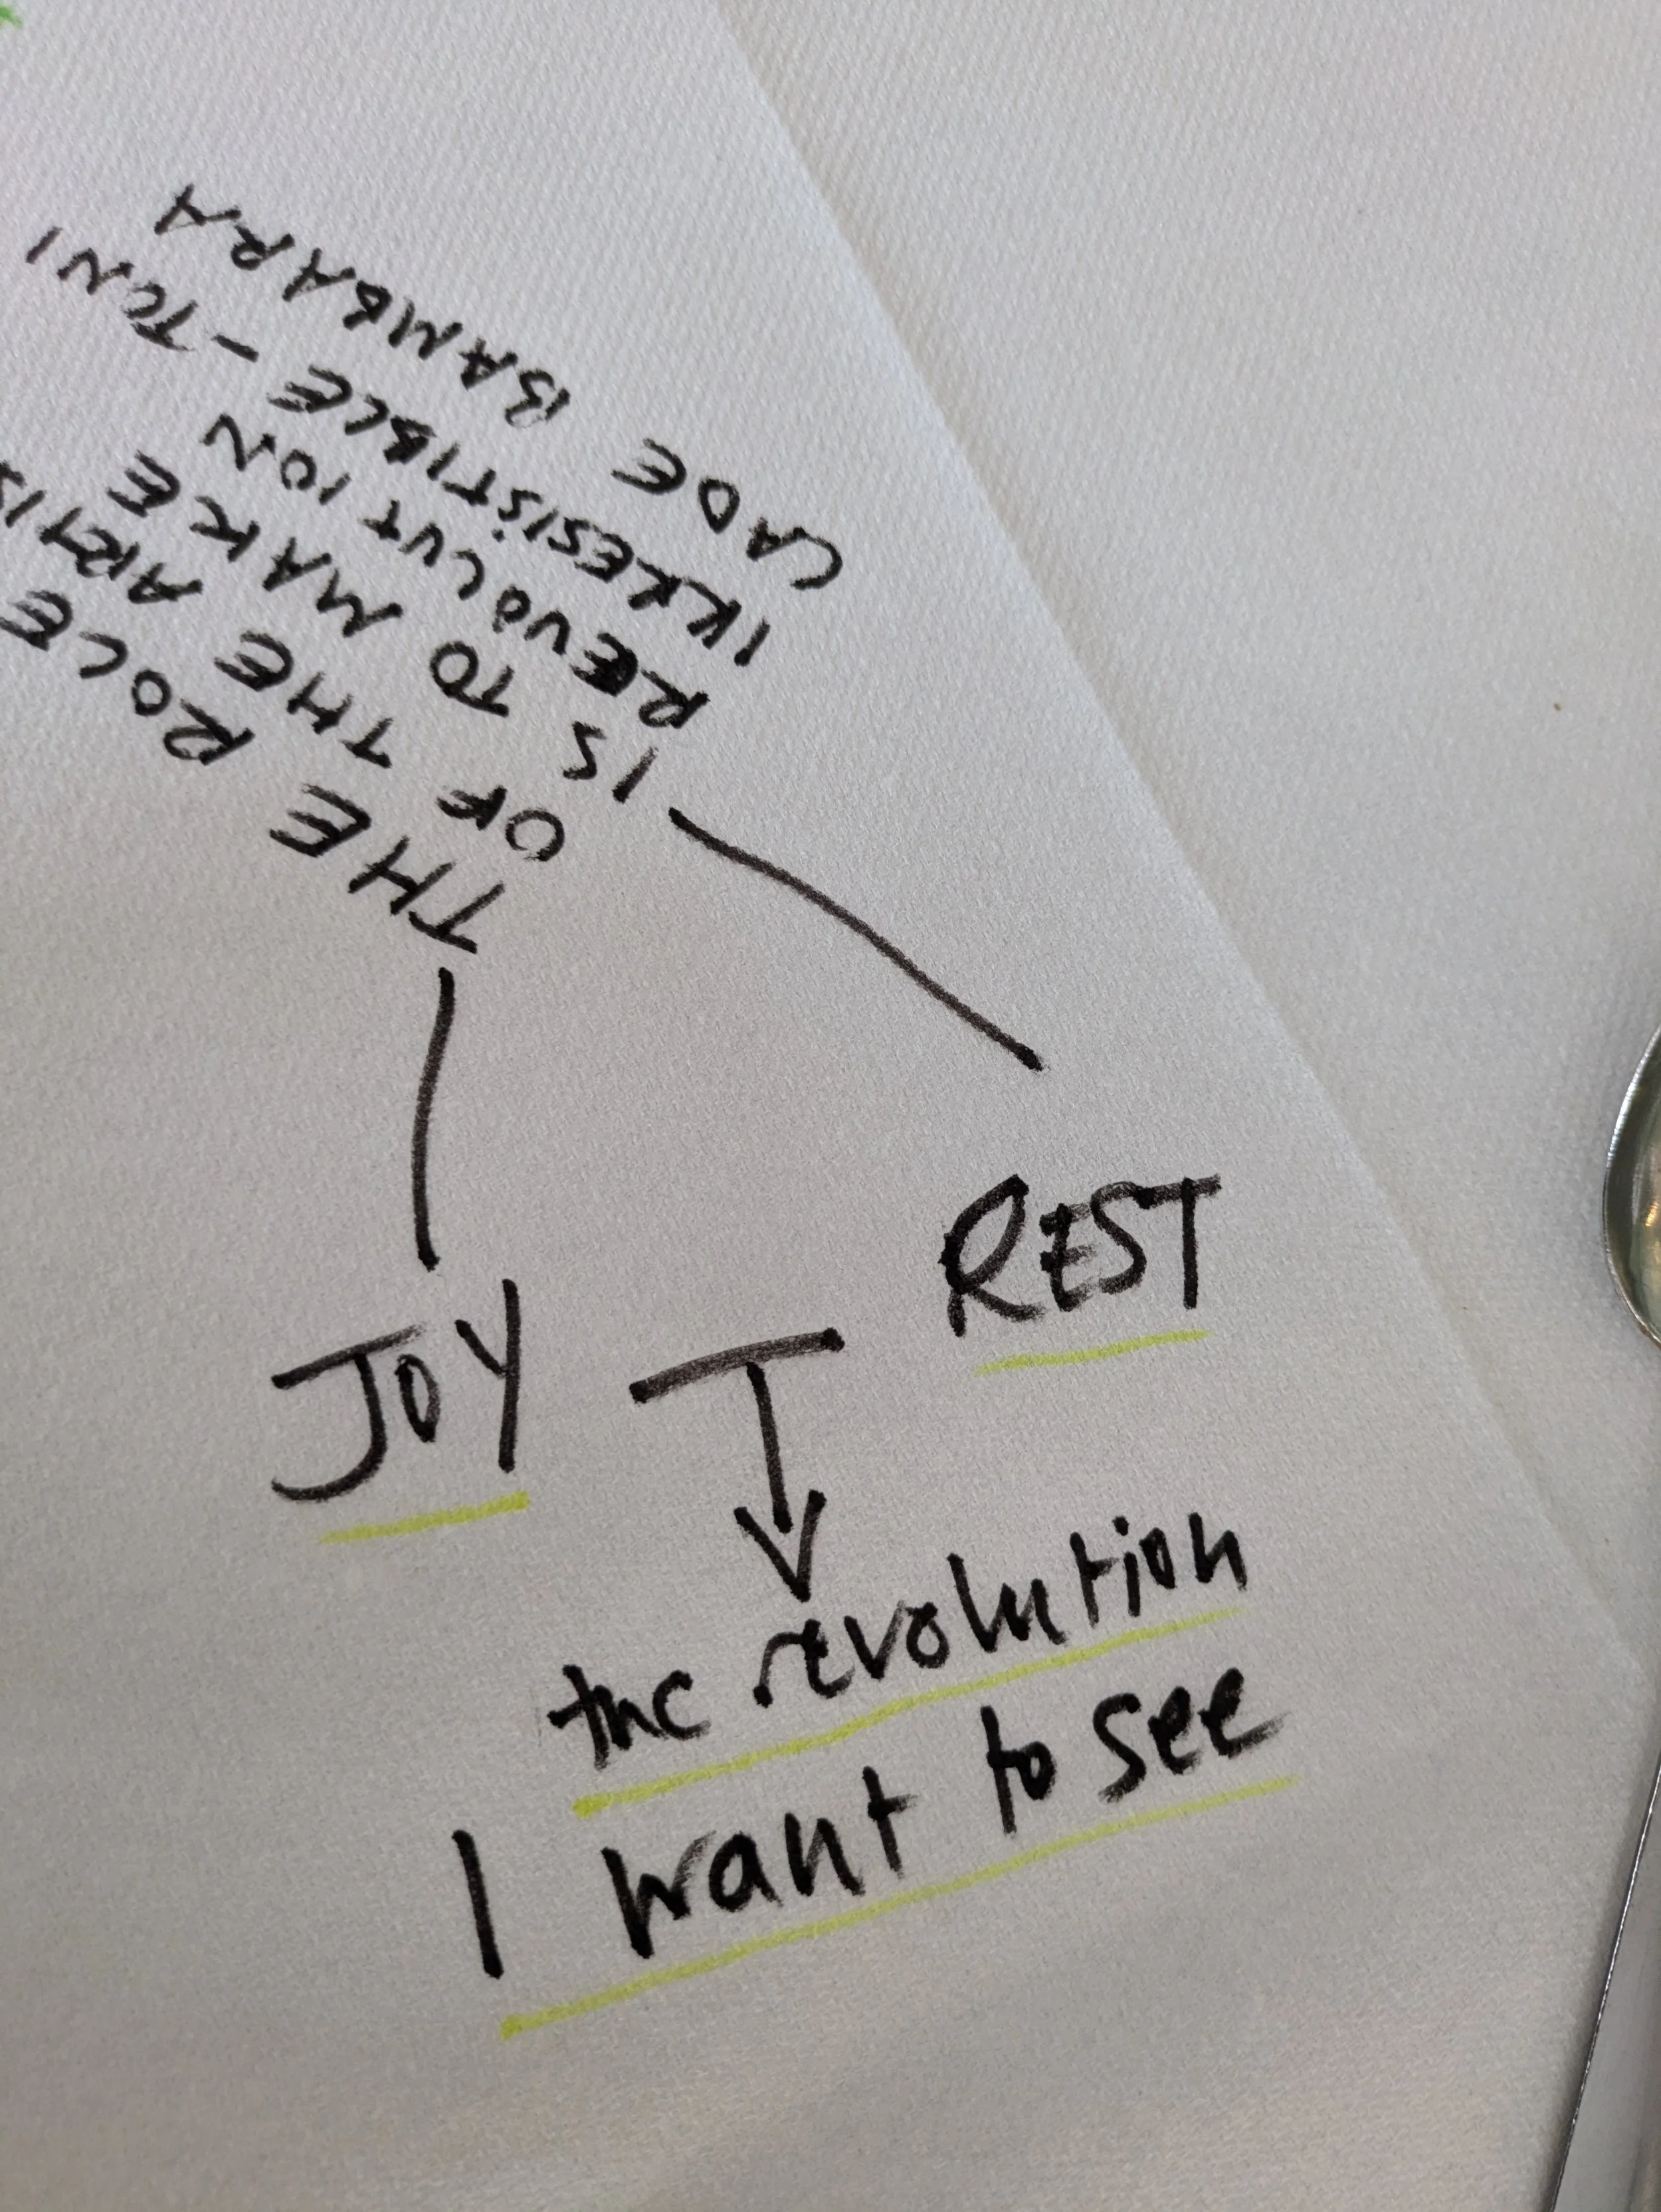 THE ROLE
OF THE ARTIS
IS TO MAKE
REVOLUTION
IRRESISTIBLE - TONI
CADE BAMBARA
JOY
REST
the revolution
I want to see